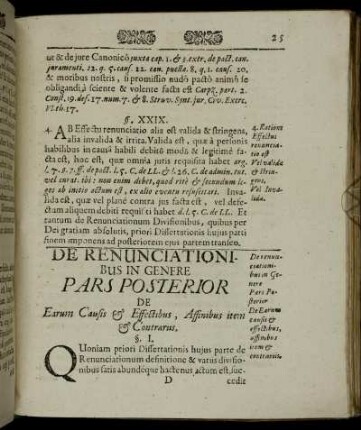 25
ut & de jure Canonicô juxta cap. 1. & 3. extr. de pact. can.
juramenti. 12. q. 5. caus. 22. can. puella. 8. q. 1. caus. 20.
& moribus nostris, si promissio nudô pactô animô se
obligandi à sciente & volente facta est Carpz. part. 2.
Const. 19. def. 17. num. 7. & 8. Struv. Synt. jur. Civ. Exerc.
VI. th. 17.
§. XXIX.
4. AB Effectu renunciatio alia est valida & stringens,
alia invalida & irrita. Valida est, quæ à personis
habilibus in causâ habili debitô modô & legitimè fa-
cta est, hoc est, quæ omnia juris requisita habet arg.
l. 7. §. 7. ff. de pact. l. 5. C. de LL. & l. 26. C. de admin. tut.
vel curat. ibi: non enim debet, quod ritè & secundum le-
ges ab initio actum est, ex alio eventu rescissari. Inva-
lida est, quæ vel planè contra jus facta est, vel defe-
ctum aliquem debiti requisiti habet d. l. 5. C. de LL. Et
tantum de Renunciationum Divisionibus, quibus per
Dei gratiam absolutis, priori Dissertationis hujus parti
finem imponens ad posteriorem ejus partem transeo.
4. Ratione
Effectus
renuncia-
tio est
Vel valida
& strin-
gens,
Vel Inva-
lida.
DE RENUNCIATIONI-
BUS IN GENERE
PARS POSTERIOR
DE
Earum Causis & Effectibus, Affinibus item
& Contrariis.
De renun-
ciationi-
bus in Ge-
nere
Pars Po-
sterior
De Earum
causis &
effectibus,
affinibus
item &
contrariis.
§. I.
QUoniam priori Dissertationis hujus parte de
Renunciationum definitione & variis divisio-
nibus satis abundéque hactenus actum est, suc-
D
cedit